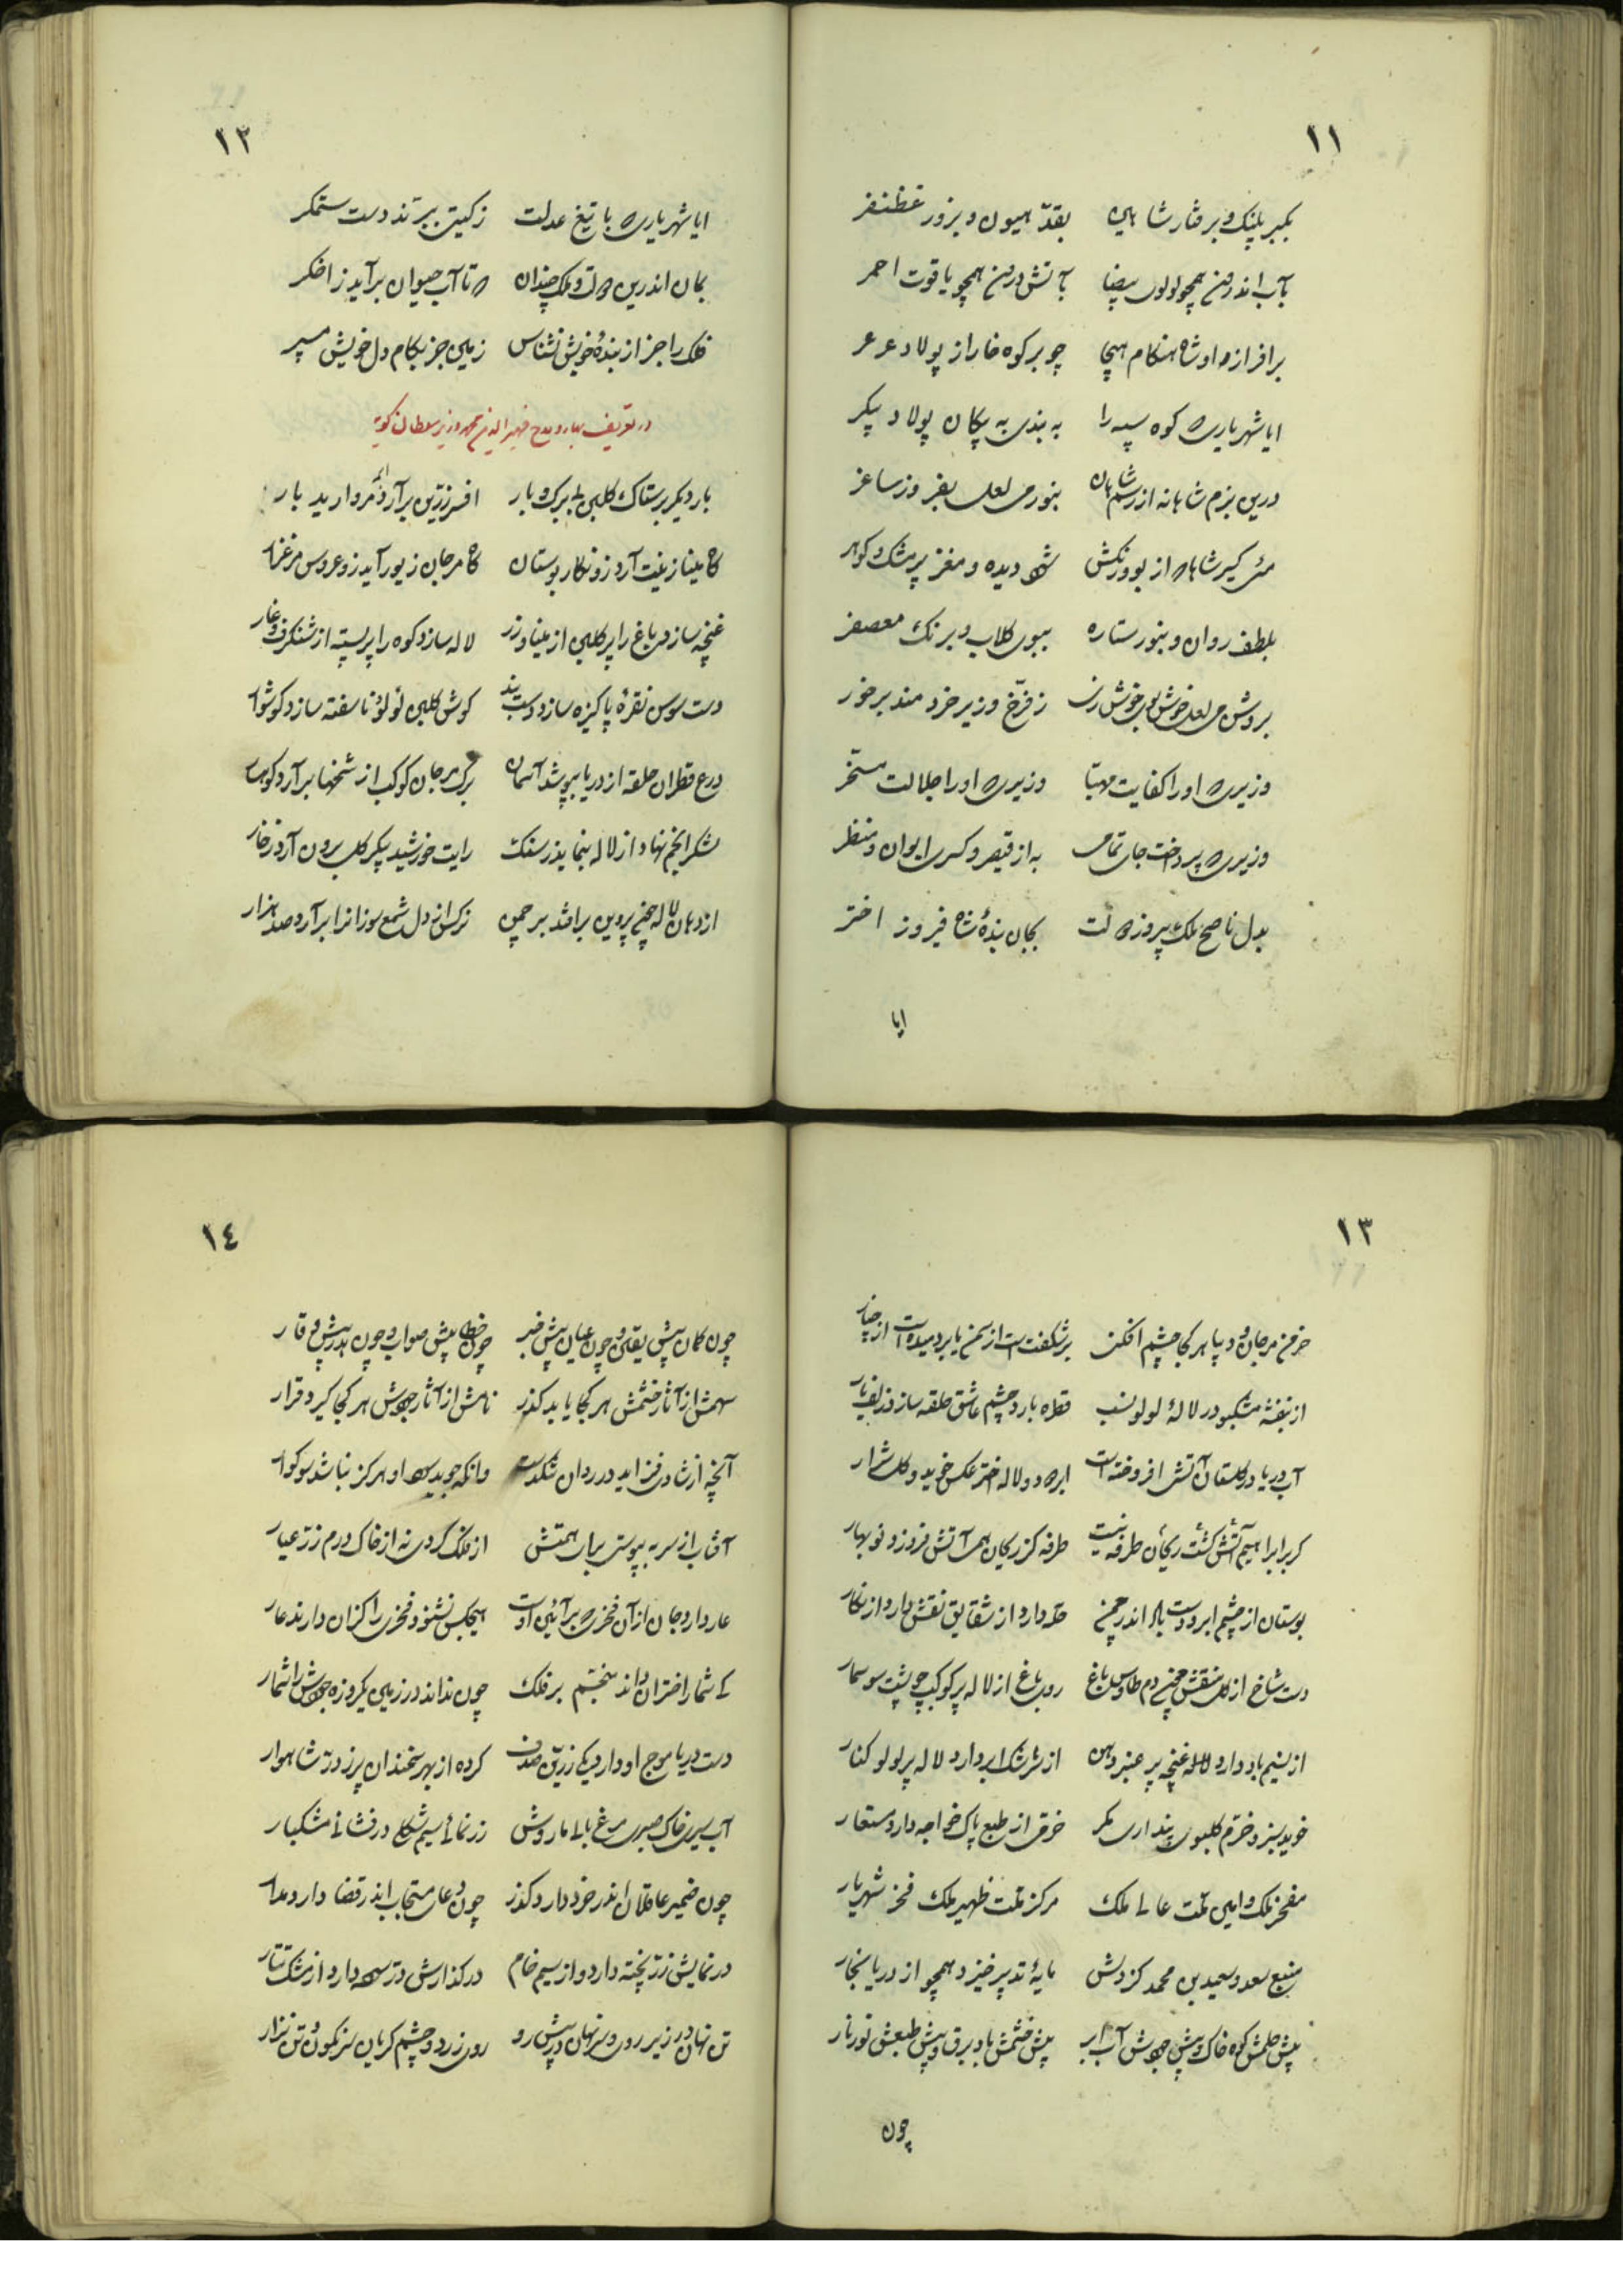 ١١
بکبر پلنک و برفتار شاهین بقدّ هیون و بزور غظنفر
بآب اندرون همچو لولوی بیضا بآتش درون همچو یاقوت احمر
برافرازد او شاه هنکام هیجا چو بر کوه خارا ز پولاد عرعر
ایا شهریاری که کوه سیه را به بندی به پیکان پولاد پیکر
درین بزم شاهانه از رسم شاهان بنور می لعل بفروز ساغر
می کیر شاها که از بوی و رنکش شود دیده و مغز پر مشک و کوهر
بلطف روان و بنور ستاره ببوی کلاب و برنک معصفر
بروشن می لعل خوش بوی خوش رنک ز فرّخ وزیر خردمند برخور
وزیری که او را کفایت مهیّا وزیری که او را جلالت مسخّر
وزیری که پرداخت جای تماشا به از قیصر و کسری ایوان و منظر
بدل ناصح ملک پیروز دولت بجان بندهٔ شاه فیروز اختر
ایا
١٢
ایا شهریاری که با تیغ عدلت ز کیتی ببرّند دست ستمکر
بمان اندرین دولت و ملک چندان که تا آب حیوان برآید ز اخکر
فلک را جز از بندهٔ خویش نشناس زمین جز بکام دل خویش مسپر
در تعریف بهار و مدح ظهیر الدین محمد وزیر سلطان کوید
بار دیکر بر ستاک کلبن بی برک و بار افسر زرّین برآرد ابر مروارید بار
کاه مینا زینت آرد زو نکار بوستان کاه مرجان زیور آید زو عروس مرغزار
غنچه سازد باغ را پر کلبن از مینا و زر لاله سازد کوه را پر بسته از شنکرف و غار
دست سوسن نقرهٔ پاکیزه سازد دست بند کوش کلبن لؤلؤ ناسفته سازد کوشوار
درع قطران حلقه از دریا بپوشد آسمان ترک مرجان کوکب از شخها برآرد کوهسار
لشکر انجم نهاد از لاله بنماید ز سنک رایت خورشید پیکر کل برون آرد ز خار
از دهان لاله چنی پروین برافتد بر چمن نرکس از دل شمع سوزانرا برآرد صد هزار
١٣
خرمن مرجان و دیبا هر کجا چشم افکنی برشکفتست از سمن یا بر دمیده است از چنار
از بنفشه مشکبو در لالهٔ لولو نسب قطره بارد چشم عاشق حلقه سازد زلف یار
آب دریا در کلستان آتش افروخته است ابر و دود لاله اختر عکس خوید و کل شرار
کر بر ابراهیم آتش کشت ریحان طرفه نیست طرفه کز ریحان همی آتش فروزد نو بهار
بوستان از چشم ابر و دست باد اندر چمن حلّه دارد از شقایق نقش دارد از نکار
دست شاخ از کل منقش چون دم طاوس باغ روی باغ از لاله پر کوکب چو پشت سوسمار
از نسیم باد دارد غنچه پر عنبر دهن از سرشک ابر دارد لاله پر لولو کنار
خوید سبز و خرّم کلبوی پنداری مکر خرّمی از طبع پاک خواجه دارد مستعار
مفخر ملک و امین ملّت عالی ملک مرکز ملّت ظهیر ملک فخر شهریار
منبع سعد و سعید بن محمد کز دلش مایهٔ تدبیر خیزد همچو از دریا بخار
پیش حلمش کوه خاک و پیش جودش آب ابر پیش خشمش باد برق و پیش طبعش نور نار
چون
١٤
چون کمان پیش یقین و چون عیان پیش خبر چون خطا پیش صواب و چون هدر پیش وقار
سهمش از آثار خشمش هر کجا یابد کذر نامش از آثار جودش هر کجا کیرد قرار
آنچه از شادی فزاید در روان تنکدست وانکه جوید سود او هرکز نباشد سوکوار
آفتاب از سر به پیوستی برای همتش از فلک کردی نه از خاک درم زر عیار
عار دارد جان از آن فخری که برآئین اوست هیچکس نشنود فخری را کزان دارند عار
کی شمار اختران داند منجّم بر فلک چون نداند در زمین یکروزه جودش را شمار
دست دریا موج او دارد یکی زرّین صدف کرده از بهر سخندان پر ز درّ شاهوار
آب سیری خاک صبری مرغ بالی مار وش زر نمائی سیم شکلی درفشانی مشکبار
چون ضمیر عاقلان اندر خرد دارد کذر چون دعای مستجاب اندر قضا دارد مدار
در نمایش زرّ پخته دارد و از سیم خام در کذارش درّ سوده دارد از مشک تتار
تن نهان در زیر روی و سر نهان در پیش رو روی زرد و چشم کریان سر نکون و تن نزار